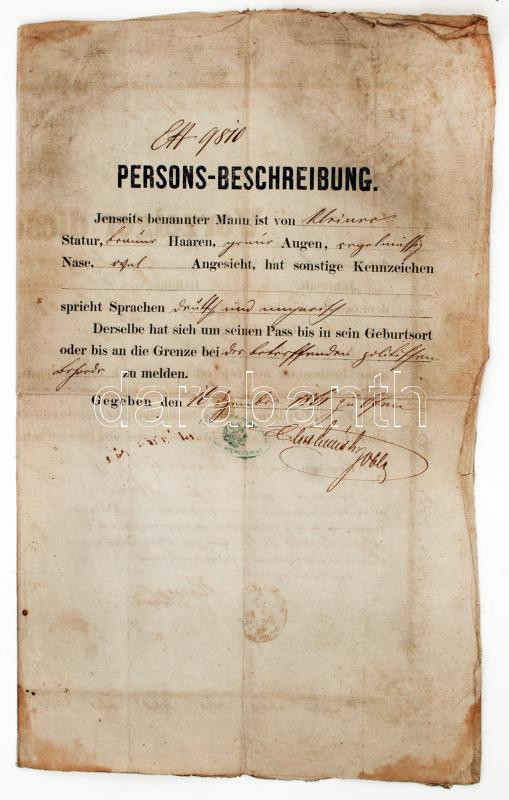 9810
PERSONS-BESCHREIBUNG.
Jenseits benannter Mann ist von kleiner
Statur, braune Haaren, graue Augen, regelmässig
Nase, oval Angesicht, hat sonstige Kennzeichen
spricht Sprachen deutsch und ungarisch
Derselbe hat sich um seinen Pass bis in sein Geburtsort
oder bis an die Grenze bei der betreffenden politischen
Behörde zu melden.
darabanth
Gegeben den